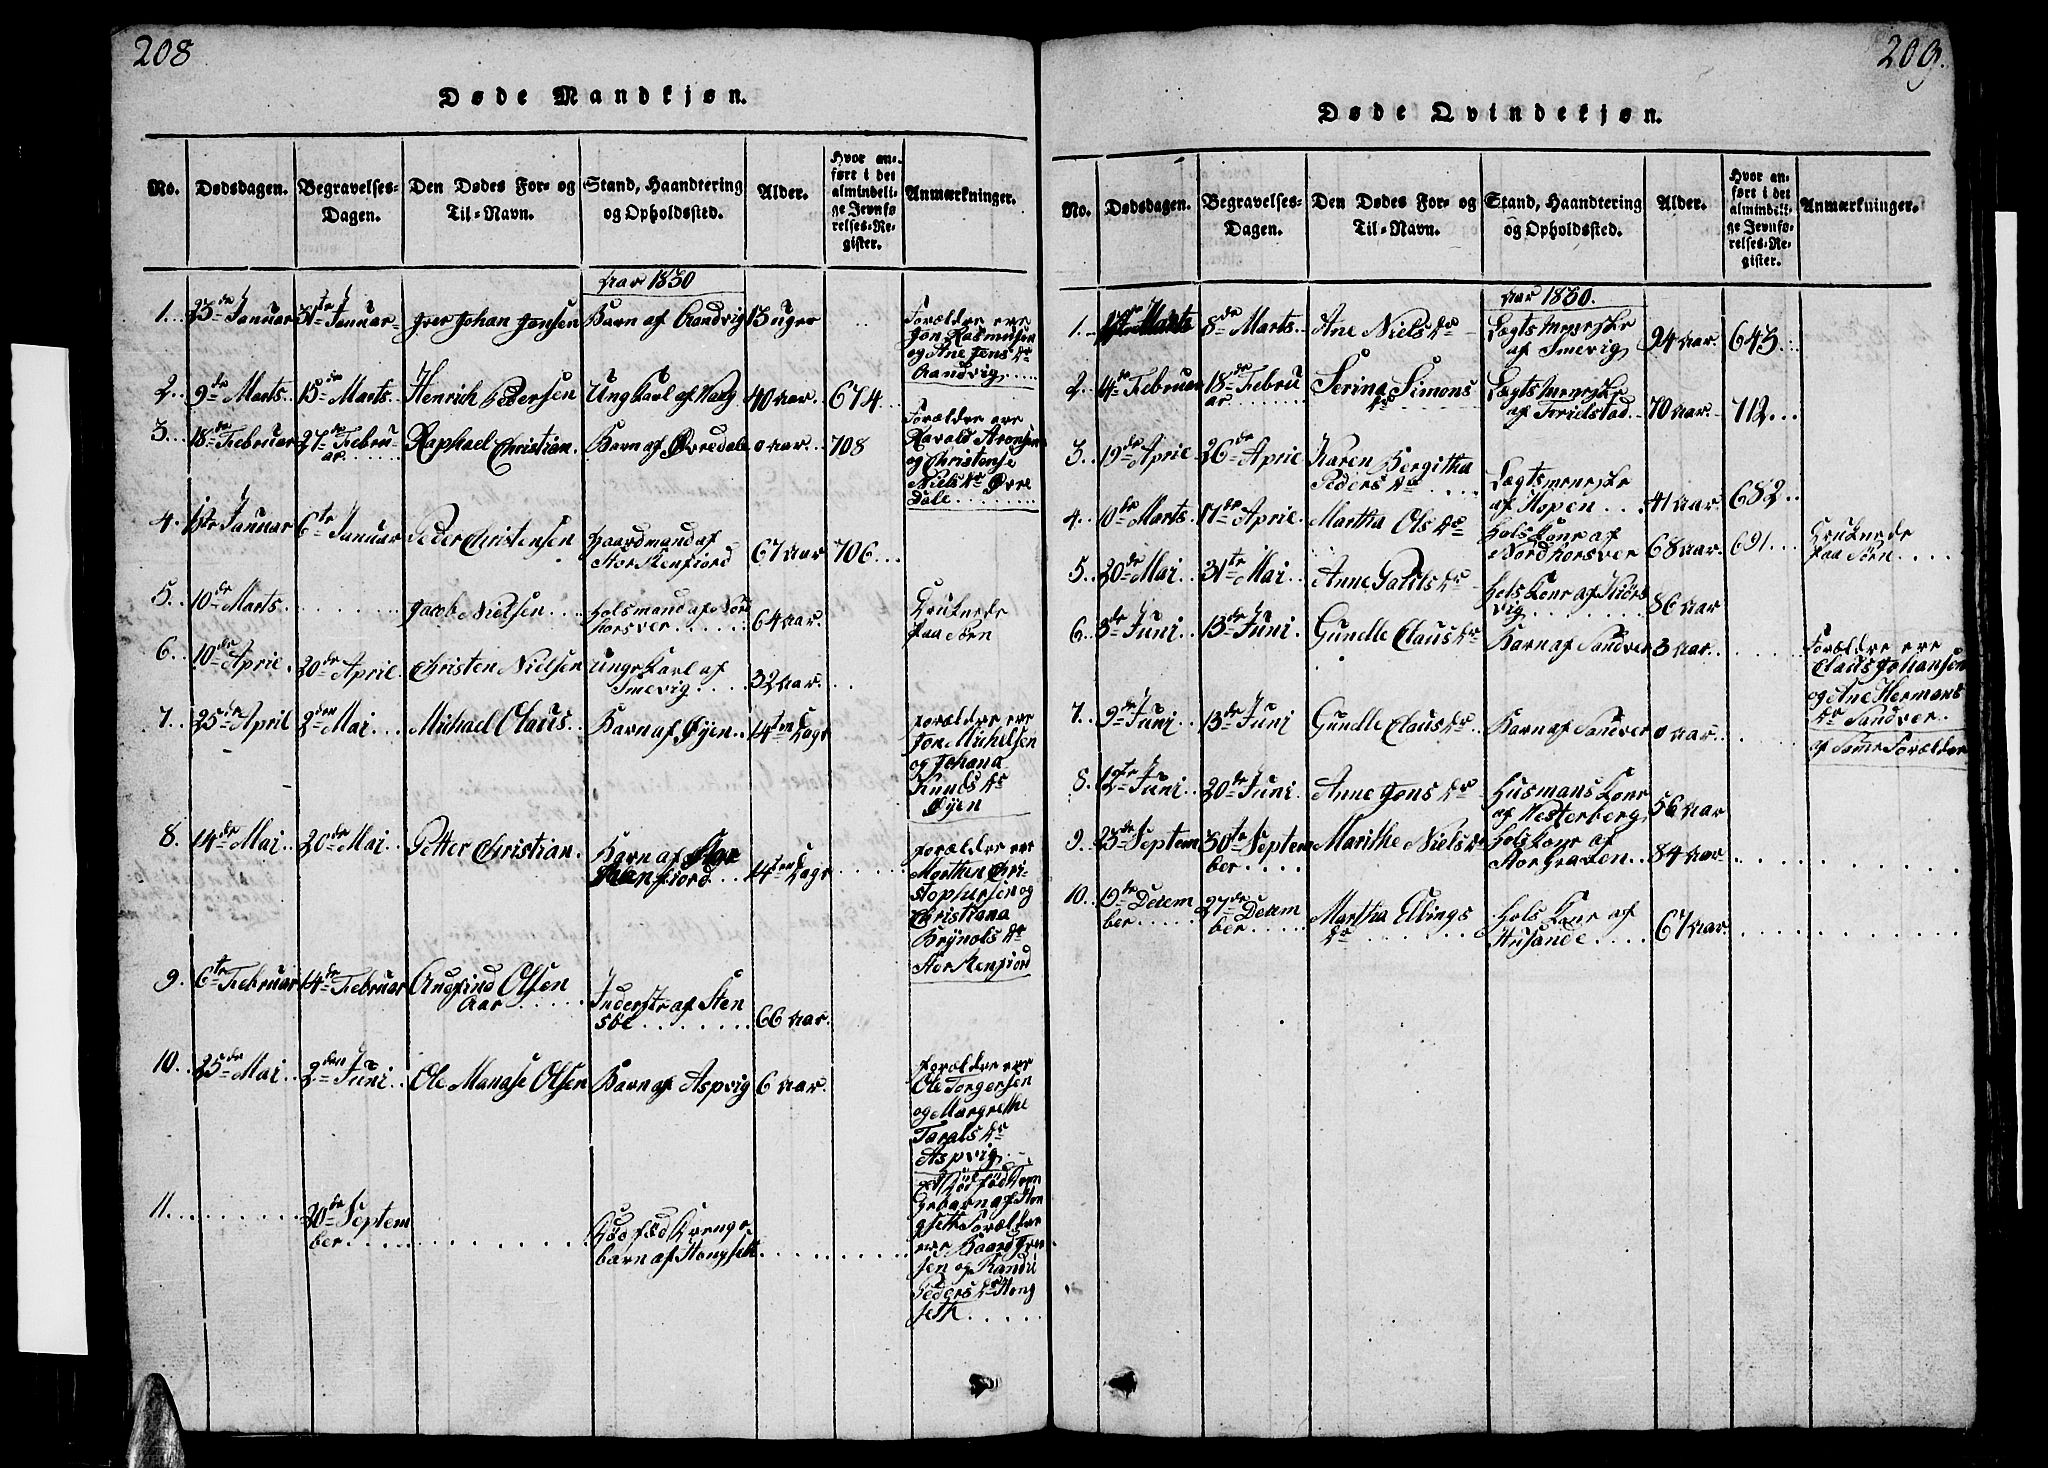 208
Døde Mandkjøn.
No.
Dødsdagen.
Begravelses-
Dagen.
Den Dødes For- og
Til-Navn.
Stand, Haandtering
og Opholdssted.
Alder.
Hvor an-
ført i det
almindeli-
ge Jevnfø
relses-Re-
gister.
Anmærkninger.
Aar 1830
1. 23de Januar 31te Januar Iver Johan Jonsen Barn af Aandvig 13 uger
Forældre ere
Jon Rasmusen
og Ane Jens Dr
Aandvig
2. 9de Marts 15de Marts Henrich Pedersen Ungkarl af 40 Aar 674
3. 18de Februar 27de Febru-
ar Raphael Christian Barn af Øvredale 0 Aar 708
Forældre ere
Harald Aronsen
og Christense
Niels Dr Øvre
Dale
4. 1ste Januar 6te Januar Peder Christensen Gaardmand af
Storkenfiord 67 Aar 706
5. 10de Marts Jacob Nielsen Holsmand af Nord
Korsver 64 Aar
Druknede
paa Søen
6. 10de April 20de April Christen Nielsen Ungekarl af
Smevig 32 Aar
7. 25de April 2den Mai Michael Claus Barn af Øyen 14ten Dage
Forældre ere
Jon Michelsen
og Johana
Knuds Dr
Øyen
8. 14de Mai 20de Mai Petter Christian Barn af Stor
kenfiord 14ten Dage
Forældre ere
Morthen Chri-
stophersen og
Christiana
Brynols Dr
Storkenfiord
9. 6te Februar 14de Februar Amfind Olsen
Aar Inderstr af Sten
søe 66 Aar
10. 25de Mai 2den Juni Ole Manase Olsen Barn af Aspvig 6 Aar
Forældre ere
Ole Torgersen
og Margrethe
Tarals Dr
Aspvig
11. 20de Septem
ber Død fød Drenge
barn af Hongseth
et Død fød Dren
gebarn af Hon
gseth Forældre
ere Baard Iver
sen og Randi
Peders Dr Hong
seth
209.
Døde Qvindekjøn.
No.
Dødsdagen.
Begravelses-
Dagen.
Den Dødes For- og
Til-Navn.
Stand, Haandtering
og Opholdssted.
Alder.
Hvor an-
ført i det
almindeli-
ge Jevnfø-
relses-Re-
gister.
Anmærkninger.
Aar 1830.
1. Marts 8de Marts Ane Niels Dr Lægtsmeneske
af Smevig 94 Aar 643
2. 14de Februar 18de Febru
ar Serina Simons
Dr Lægtsmeneske
af Foridstad 70 Aar 712
3. 19de April 26de April Karen Bergitha
Peders Dr Lægtsmeneske
af Hopen 41 Aar 682
4. 10de Marts 17de April Martha Ols Dr Hols Kone af
Nordkorsver 68 Aar 691
Druknede
paa Søen
5. 20de Mai 31te Mai Anne Pauls Dr Hols Kone af Kiørs
vig 86 Aar
6. 3de Juni 13de Juni Gundle Claus Dr Barn af Sandver 3 Aar
Forældre ere
Claus Johansen
og Ane Hermans
Dr Sandver
7. 9de Juni 13de Juni Gundle Claus Dr Barn af Sandver 0 Aar
af Same Forældre
8. 12te Juni 20de Juni Anne Jons Dr Husmans Kone
af Westerberg 56 Aar
9. 23de Septem 30te Septem
ber Marithe Niels Dr Hols Kone af
Storgraven 84 Aar
10. 19de Decem
ber 27de Decem
ber Martha Ellings
Dr Hols Kone af
Husande 67 Aar